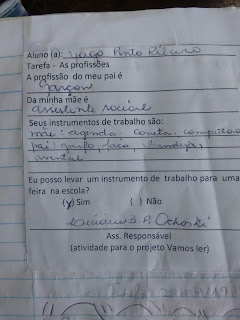 Aluno (a): Yago Pinto Ribeiro
Tarefa - As profissões
A profissão do meu pai é
garçon
Da minha mãe é
assistente social
Seus instrumentos de trabalho são:
mãe: agenda, caneta, computador
pai: garfo, faca, bandeja,
avental
Eu posso levar um instrumento de trabalho para uma
feira na escola?
(x) Sim ( ) Não
P.
Ass. Responsável
(atividade para o projeto Vamos ler)